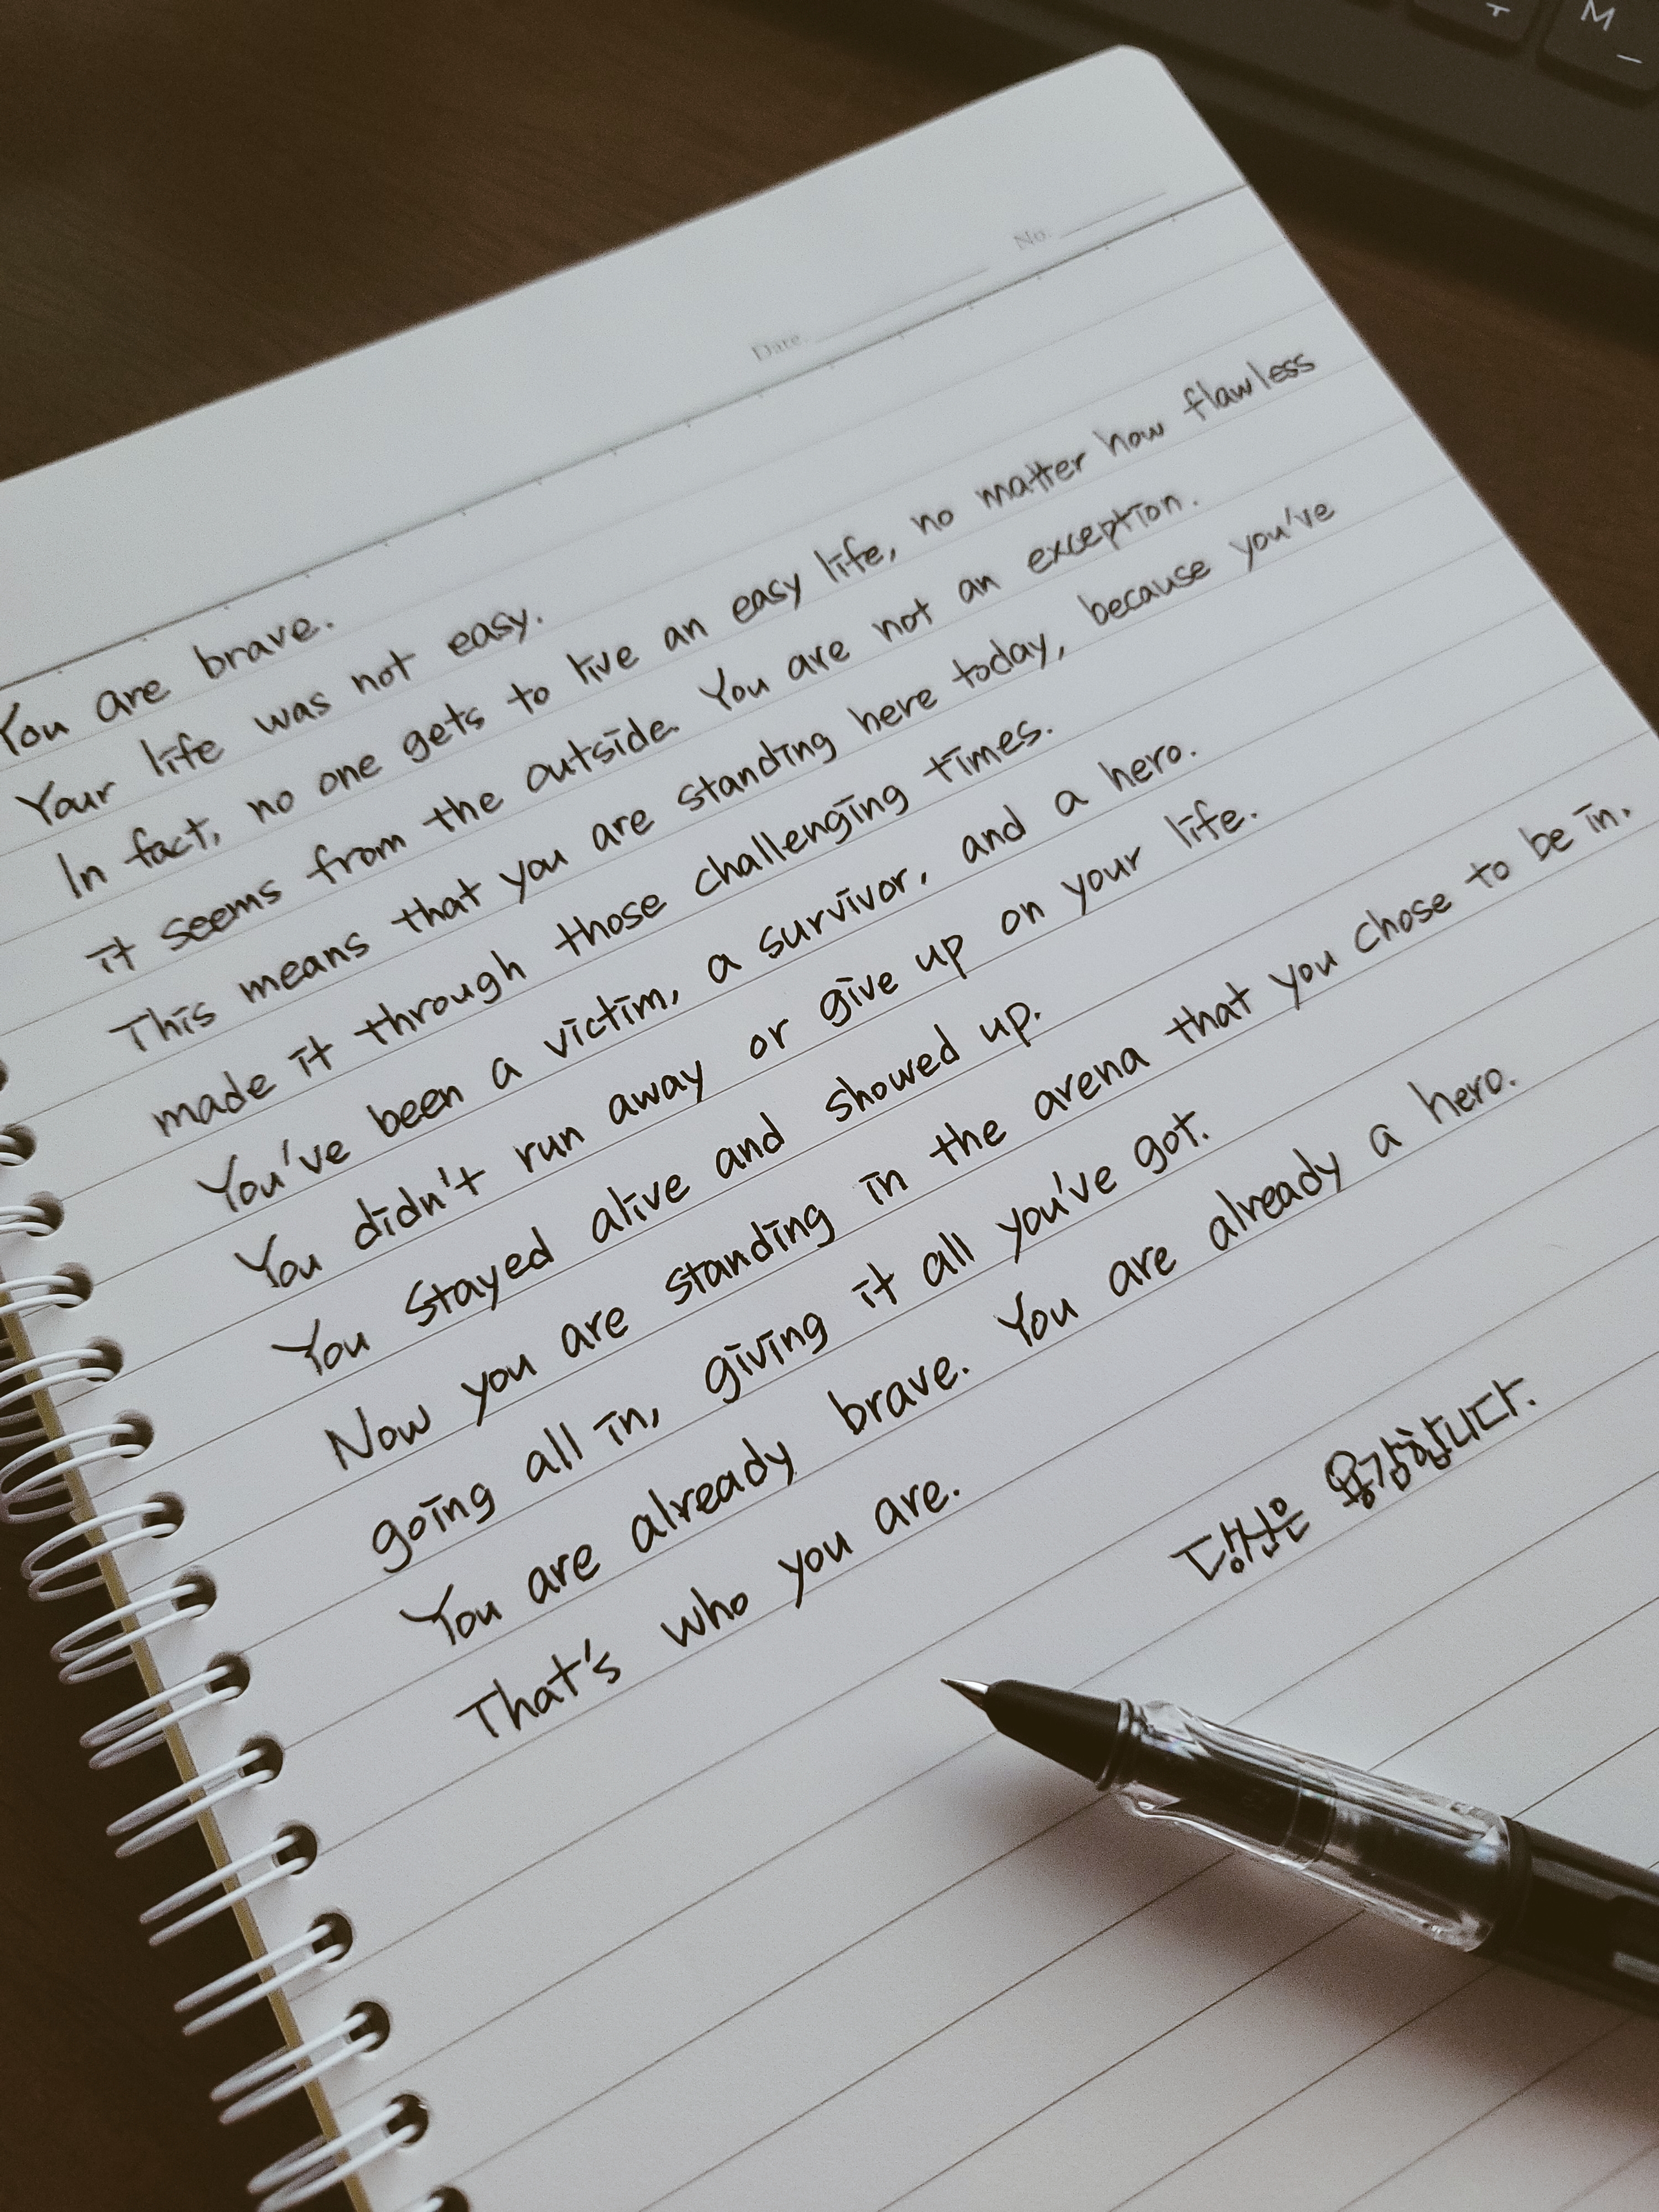 T M
No.
Date.
You are brave.
Your life was not easy.
In fact, no one gets to live an easy life, no matter how flawless
it seems from the outside. You are not an exception.
This means that you are standing here today, because you've
made it through those challenging times.
You've been a victim, a survivor, and a hero.
You didn't run away or give up on your life.
You stayed alive and showed up.
Now you are standing in the arena that you chose to be in,
going all in, giving it all you've got.
You are already brave. You are already a hero.
That's who you are.
당신은 용감합니다.